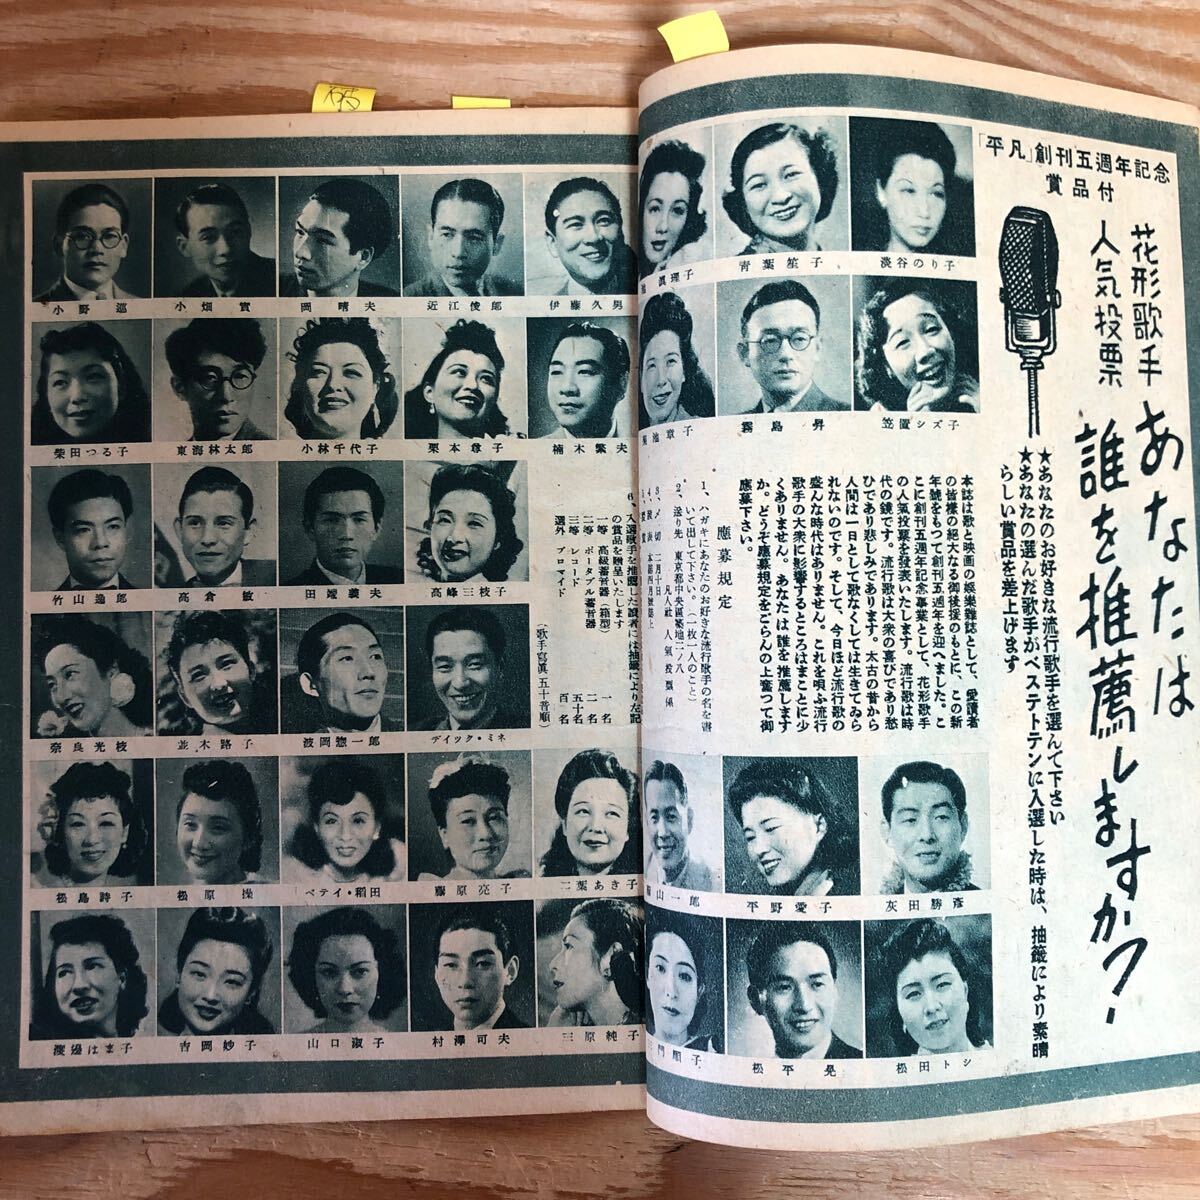 「平凡」創刊五週年記念
賞品付
花形歌手
人気投票
あなたは
誰を推薦しますか?
★あなたのお好きな流行歌手を選んで下さい
★あなたの選んだ歌手がベストテンに入選した時は、抽籤により素晴
らしい賞品を差上げます
淡谷のり子
青葉笙子
眞理子
笠置シズ子
霧島昇
菊池章子
本誌は歌と映画の娯樂雜誌として、愛讀者
の皆様の絕大なる御後援のもとに、この新
年號をもつて創刊五週年を迎へました。こ
こに創刊五週年記念事業として、花形歌手
の人氣投票を發表いたします。流行歌は時
代の鏡です。流行歌は大衆の喜びであり愁
ひであり悲しみであります。太古の昔から
人間は一日として歌なくしては生きてゐら
れないのです。そして、今日ほど流行歌の
盛んな時代はありません。これを唄ふ流行
歌手の大衆に影響するところはまことに少
くありません。あなたは誰を推薦します
か。どうぞ應募規定をごらんの上奮つて御
應募下さい。
應募規定
1、ハガキにあなたのお好きな流行歌手の名を書
いて出して下さい。(一枚一人のこと)
2、送り先 東京都中央區築地二ノ八
凡人社 人氣投票係
3、〆切 二月十日
本誌四月號誌上
6、入選歌手を推薦した讀者には抽籤により左記
の賞品を贈呈いたします
一等 高級蓄音器(箱型) 一名
二等 ポータブル蓄音器 二名
三等 レコード 五十名
選外 ブロマイド 百名
(歌手寫眞五十音順)
灰田勝彦
平野愛子
山一郎
松田トシ
松平晃
三門順子
伊藤久男
近江俊郎
岡晴夫
小畑實
小野巡
楠木繁夫
栗本尊子
小林千代子
東海林太郎
柴田つる子
高峰三枝子
田端義夫
高倉敏
竹山逸郎
デイツク・ミネ
波岡惣一郎
並木路子
奈良光枝
二葉あき子
藤原亮子
ベテイ・稻田
松原操
松島詩子
三原純子
村澤可夫
山口淑子
吉岡妙子
渡邊はま子